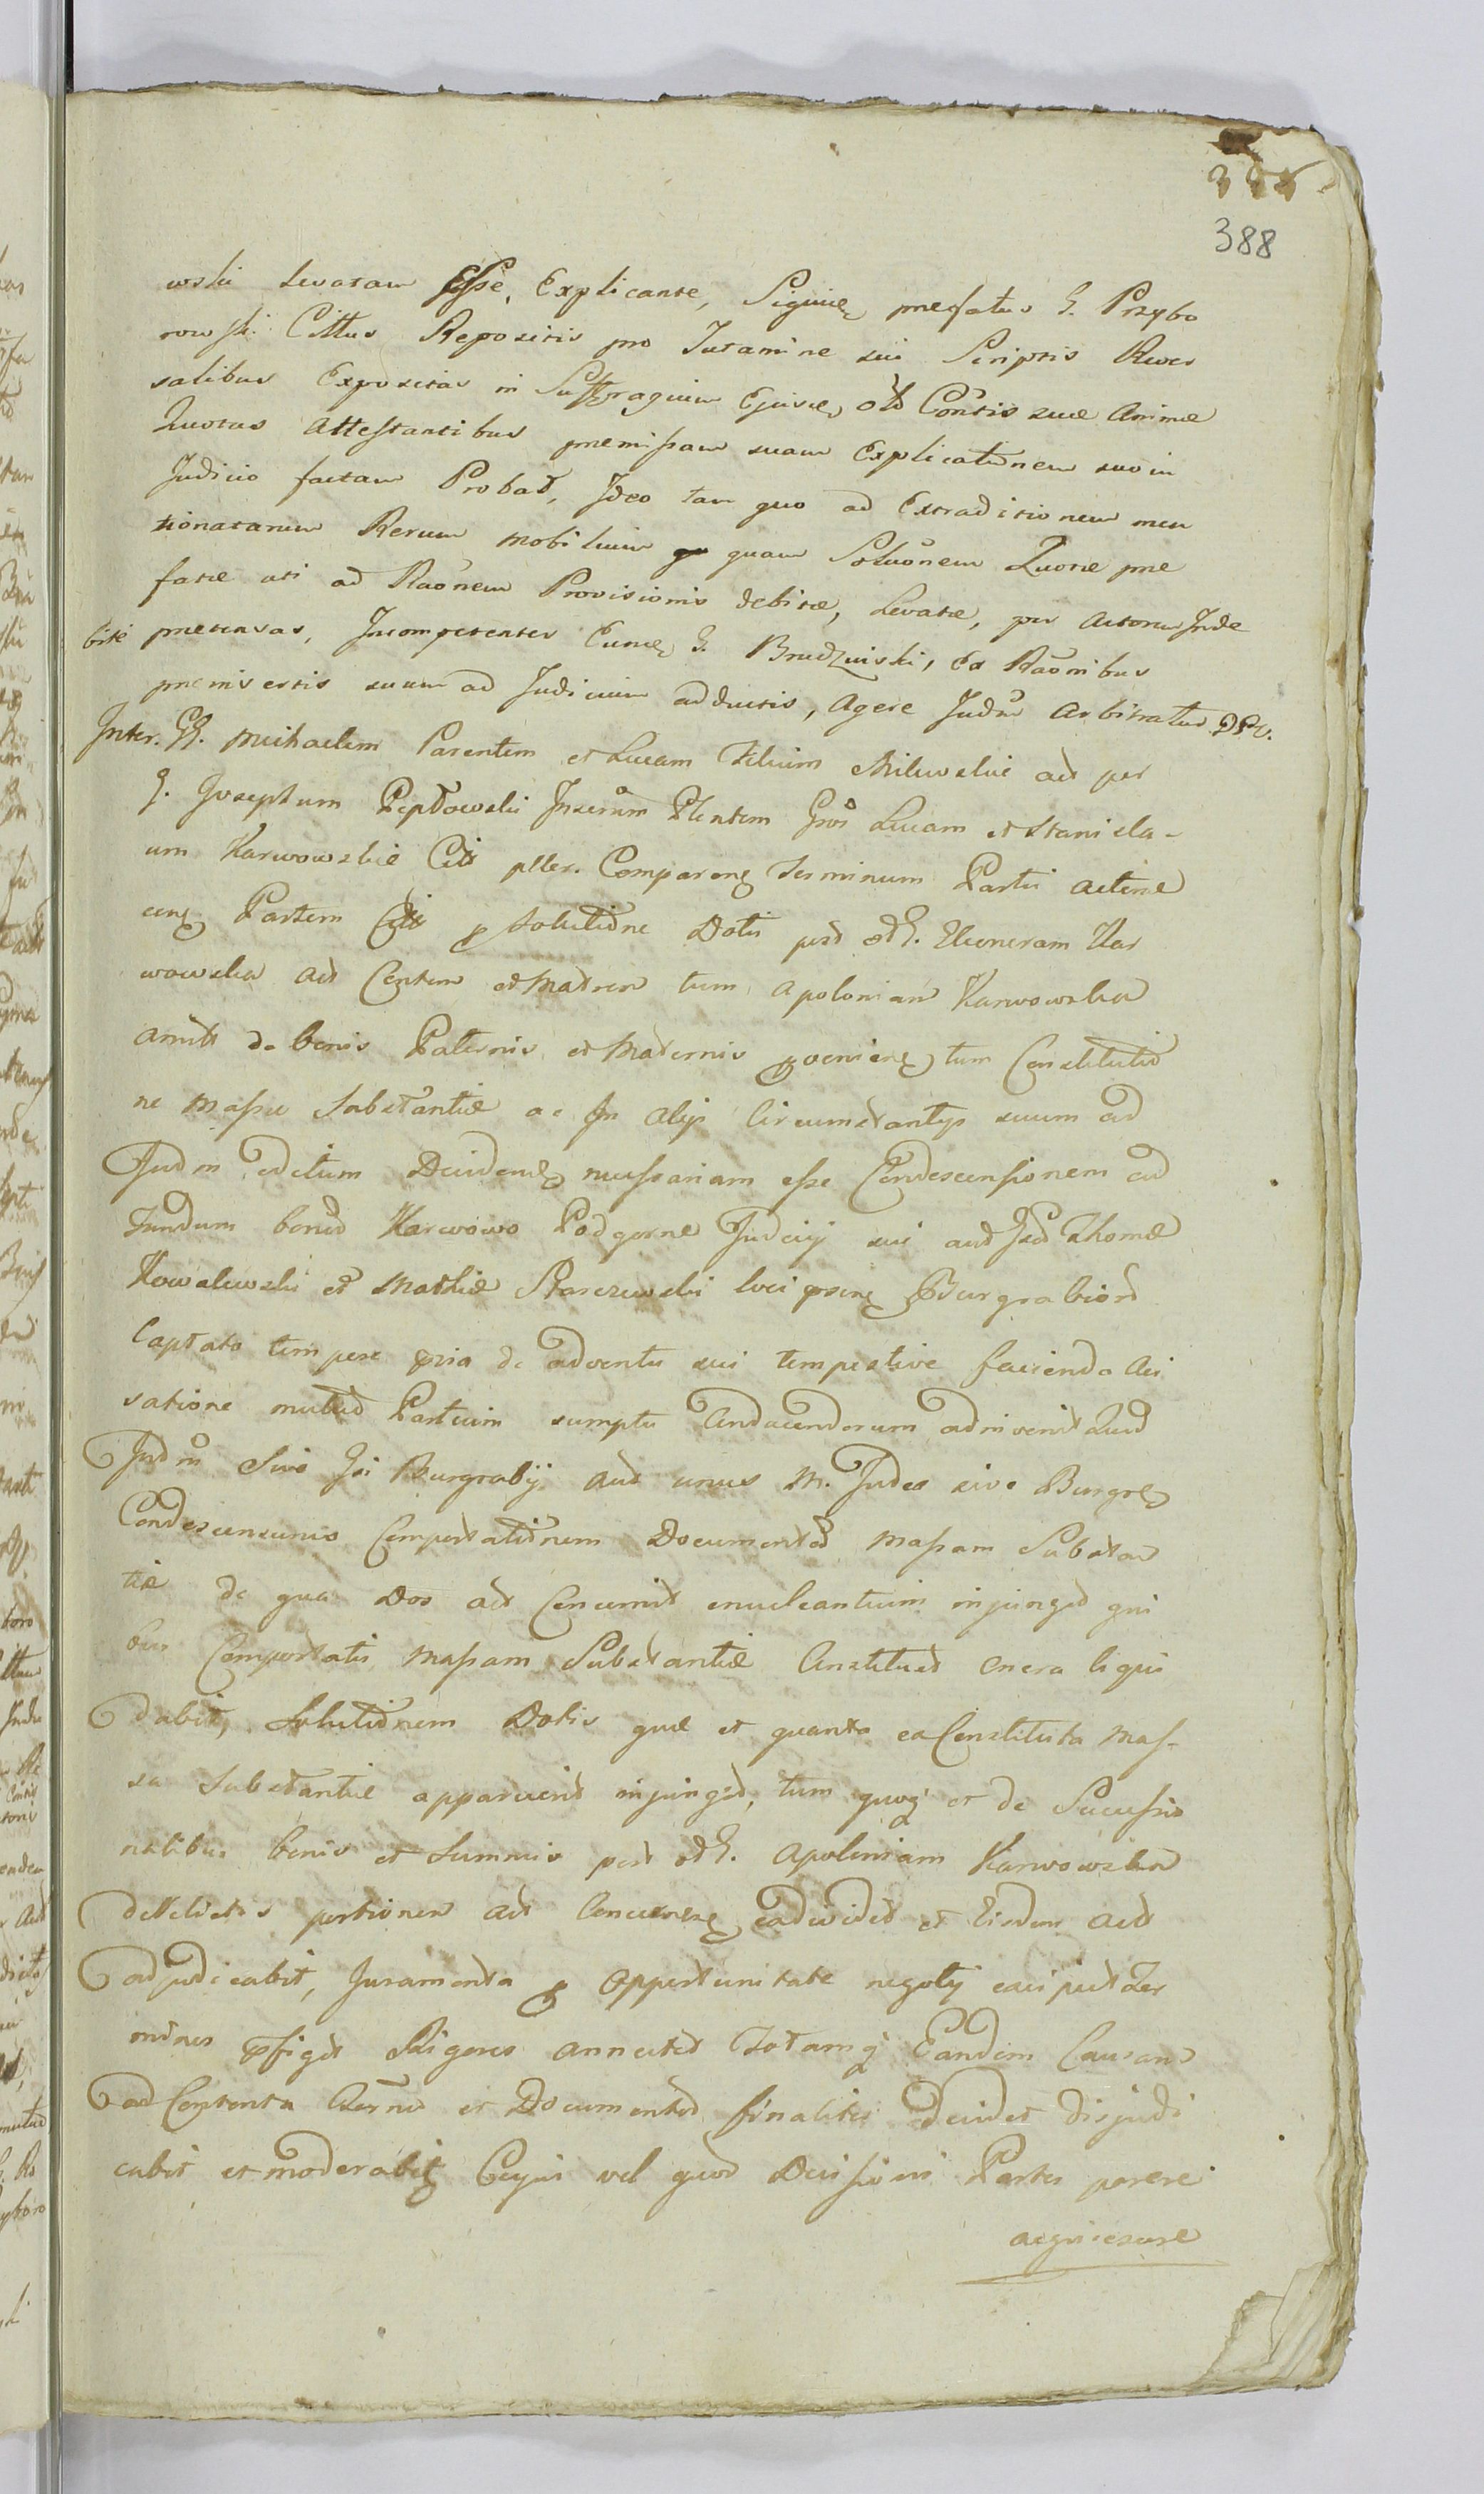 388
wski Levatam Esse, Explicante, Siquidem prefatus G. Przybo
rowski Cittus Repositis pro Juramine sui Scriptis Rever
salibus Expositas in Suffragium Ejusdem olim Contis suae Animae
Quotas Attestantibus premissam suam Explicationem suo in
Judicio factam Probat, Ideo tam quo ad Extraditionem men
tionatarum Rerum Mobilium quam Solutionem Quotae pre
fatae uti ad Raonem Provisionis debitae, Levatae, per Actorem Inde
bite pretensas, Incompetenter Eundem G. Brudzinski, Ex Raonibus
premissertis suum ad Judicium adductis, Agere Judm Arbitratur DPV.
Inter GG. Michaelem Parentem et Lucam Filium Milewskie act per
G. Josephum Peptowski Inserum Plentem Gros Lucam et Stanisla-
um Karwowskie Citt pller. Comparen Terminum Partis actinae
cum Partem Citt pro Solutione Dotis post olim G. Eleonoram Kar
wowska act Contem et Matrem tum Apolonian Karwowska
amitt de bonis Paternis et Maternis proveniene tum Constitutio
ne Massae Substantiae ac In alijs Circumstantijs suum ad
Judm editum Decidend necessariam esse Condescensionem ad
Fundum bonor Karwowo Podgorne Judicij sui aut Gsor Thomae
Kowalewski et Mathiae Starczewski loci Burgrabior
Captato tempore de adventu sui tempestive facienda Avi
satione mutuo Partium sumptu Conducendorum adinvenit Quod
Judm sive Gsi Burgrabij aut unus M. Judex sive Burgr
Condescensurus Comportationem Documentor Massam Substan
tiae de qua Dos act Concernit enucleantium injunget qui
bus Comportatis Massam Substantiae Constituet onera liqui
dabit, Solutionem Dotis quae et quanta ea Constituta Mas-
sa Substantiae apparuerit injunget, tum quoq et de Successio
nalibus bonis et Summis post olim G. Apoloniam Karwowska
derelictis portionem act Concernen et Eisdem act
adjudicabit, Juramenta pro opportunitate negotij Ter
minos figet Rigores annectet Totamq Eandem Causam
ad Contenta et Documentor finaliter decidet disjudi
cabit et moderabit Cujus vel quod Decisioni Partes parere
acquiescere